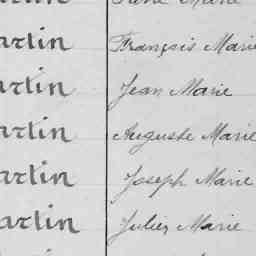 artin François Marie
artin Jean Marie
artin Auguste Marie
artin Joseph Marie
artin Julien Marie